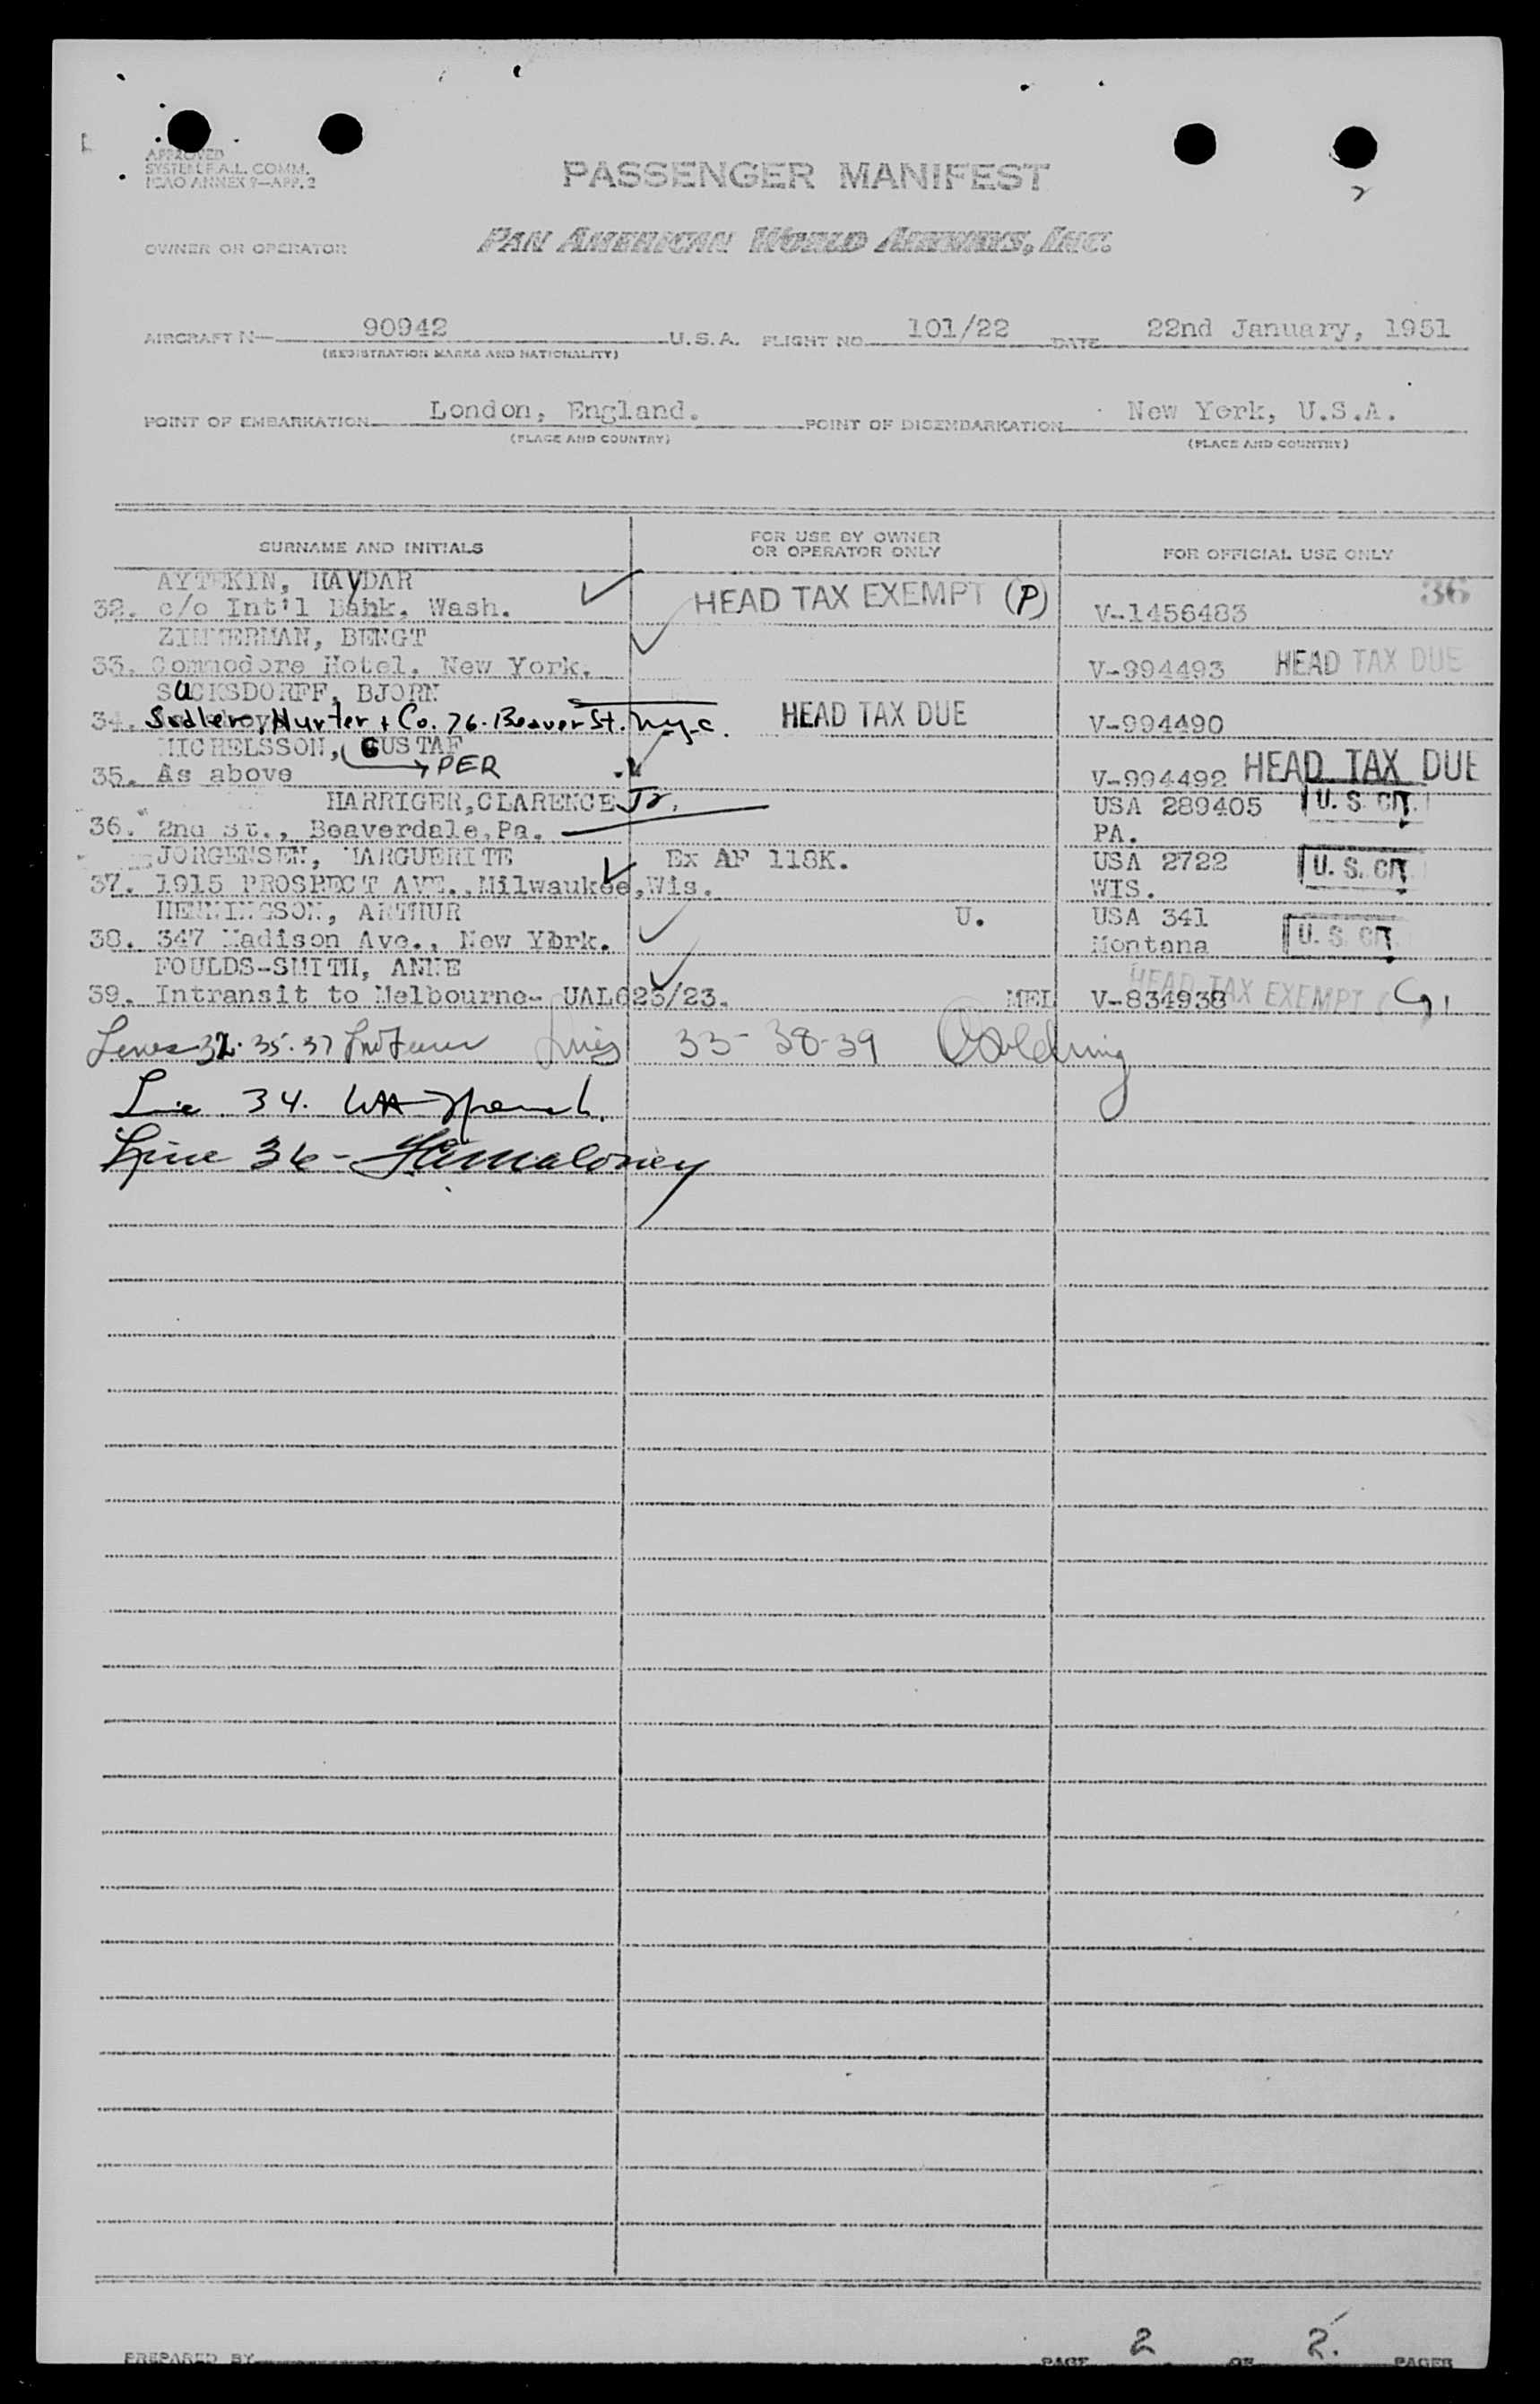 APPROVED
SYSTEM F.A.L. COMM.
ICAO ANNEX 9—APP. 2
PASSENGER MANIFEST
2
OWNER OR OPERATOR PAN AMERICAN WORLD AIRWAYS, INC.
AIRCRAFT N— 90942 U.S.A. FLIGHT NO. 101/22 DATE 22nd January, 1951
(REGISTRATION MARKS AND NATIONALITY)
POINT OF EMBARKATION London, England. POINT OF DISEMBARKATION New York, U.S.A.
(PLACE AND COUNTRY) (PLACE AND COUNTRY)
SURNAME AND INITIALS FOR USE BY OWNER OR OPERATOR ONLY FOR OFFICIAL USE ONLY
AYTEKIN, HAYDAR 36
32. c/o Int'l Bank. Wash. HEAD TAX EXEMPT (P) V-1456483
ZIMMERMAN, BENGT
33. Commodore Hotel, New York. V-994493 HEAD TAX DUE
SUCKSDORFF, BJORN
34. Hurter + Co. 76 Beaver St. N.Y.C. HEAD TAX DUE V-994490
MICHELSSON, GUSTAF
PER
35. As above V-994492 HEAD TAX DUE
HARRIGER, CLARENCE Jr. USA 289405 U. S. CIT.
36. 2nd St., Beaverdale, Pa. PA.
JORGENSEN, MARGUERITE Ex AF 118K. USA 2722 U. S. CIT.
37. 1915 PROSPECT AVE., Milwaukee, Wis. WIS.
HENNINGSON, ARTHUR U. USA 341
38. 347 Madison Ave., New York. Montana U. S. CIT.
FOULDS-SMITH, ANNE
39. Intransit to Melbourne- UAL623/23. MEL V-834938 HEAD TAX EXEMPT
Lines 32. 35. 37 Lines 33-38-39
Line 34.
Line 36 - Maloney
PREPARED BY PAGE 2 OF 2. PAGES